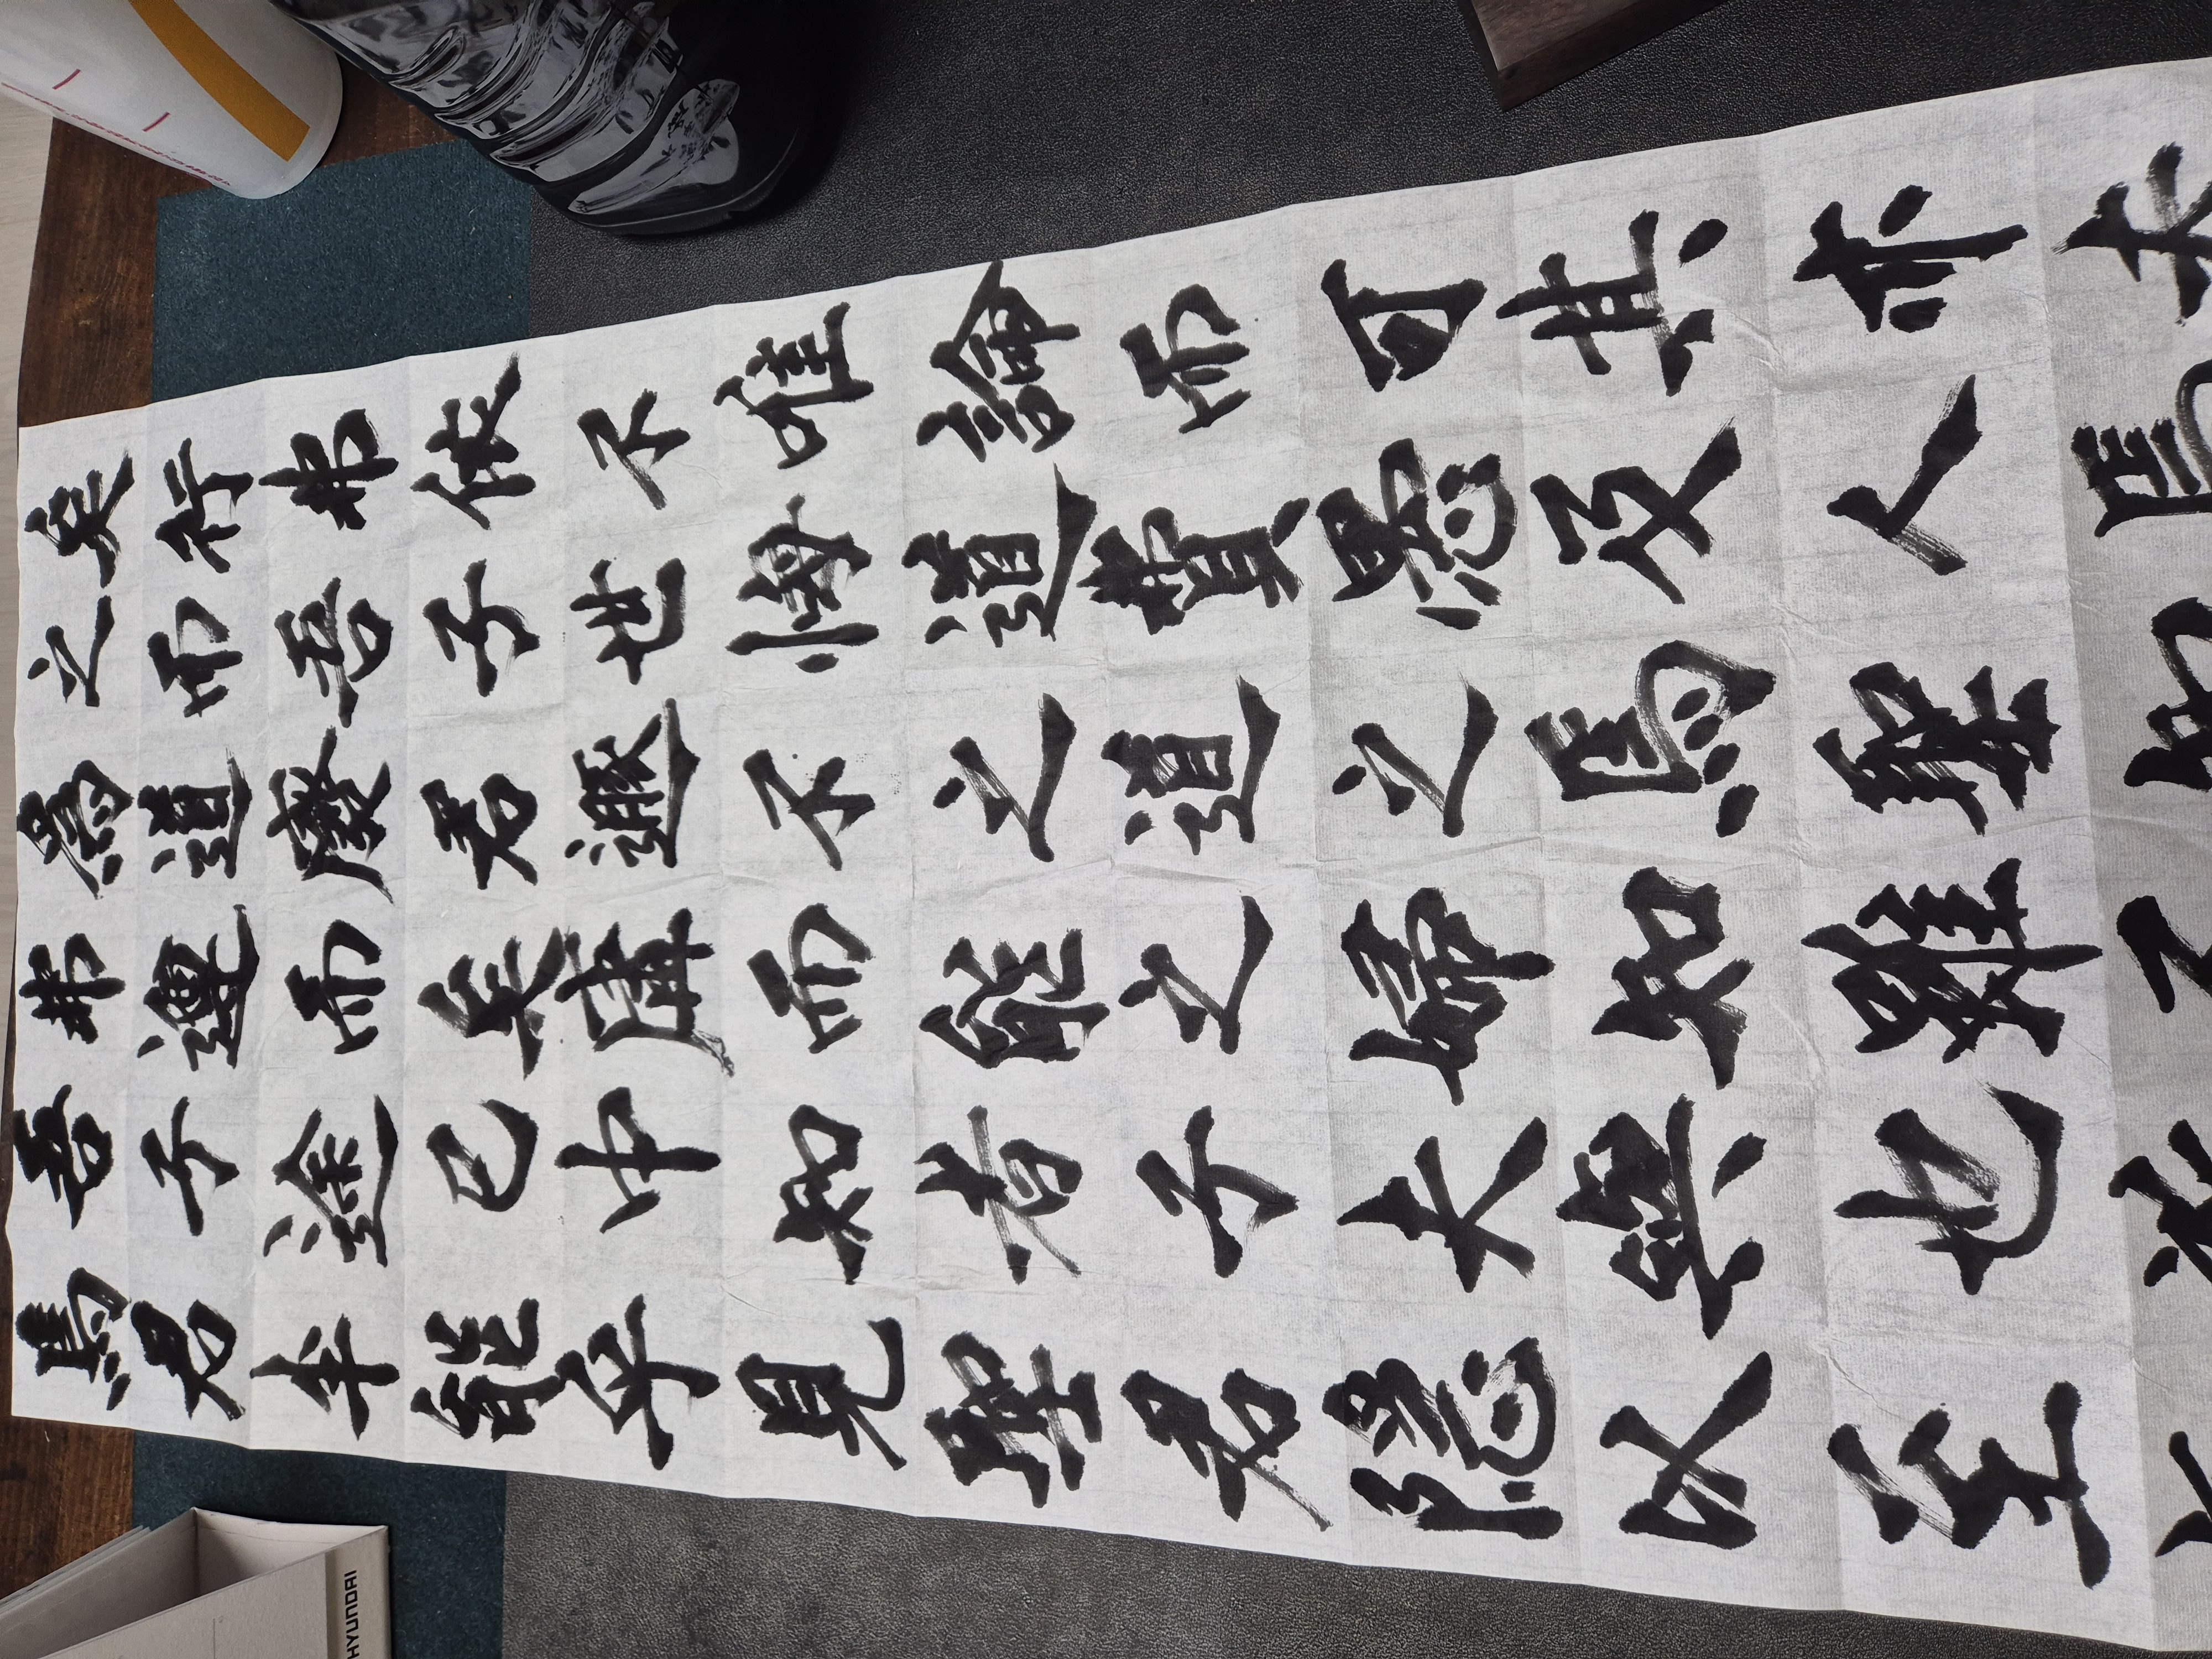 焉吾弗爲之矣
君子遵道而行
半途而廢吾弗
能已矣君子依
乎中庸遯世不
見知而不悔唯
聖者能之道論
君子之道費而
隱夫婦之愚可
以與知焉及其
至也雖聖人亦
HYUNDAI